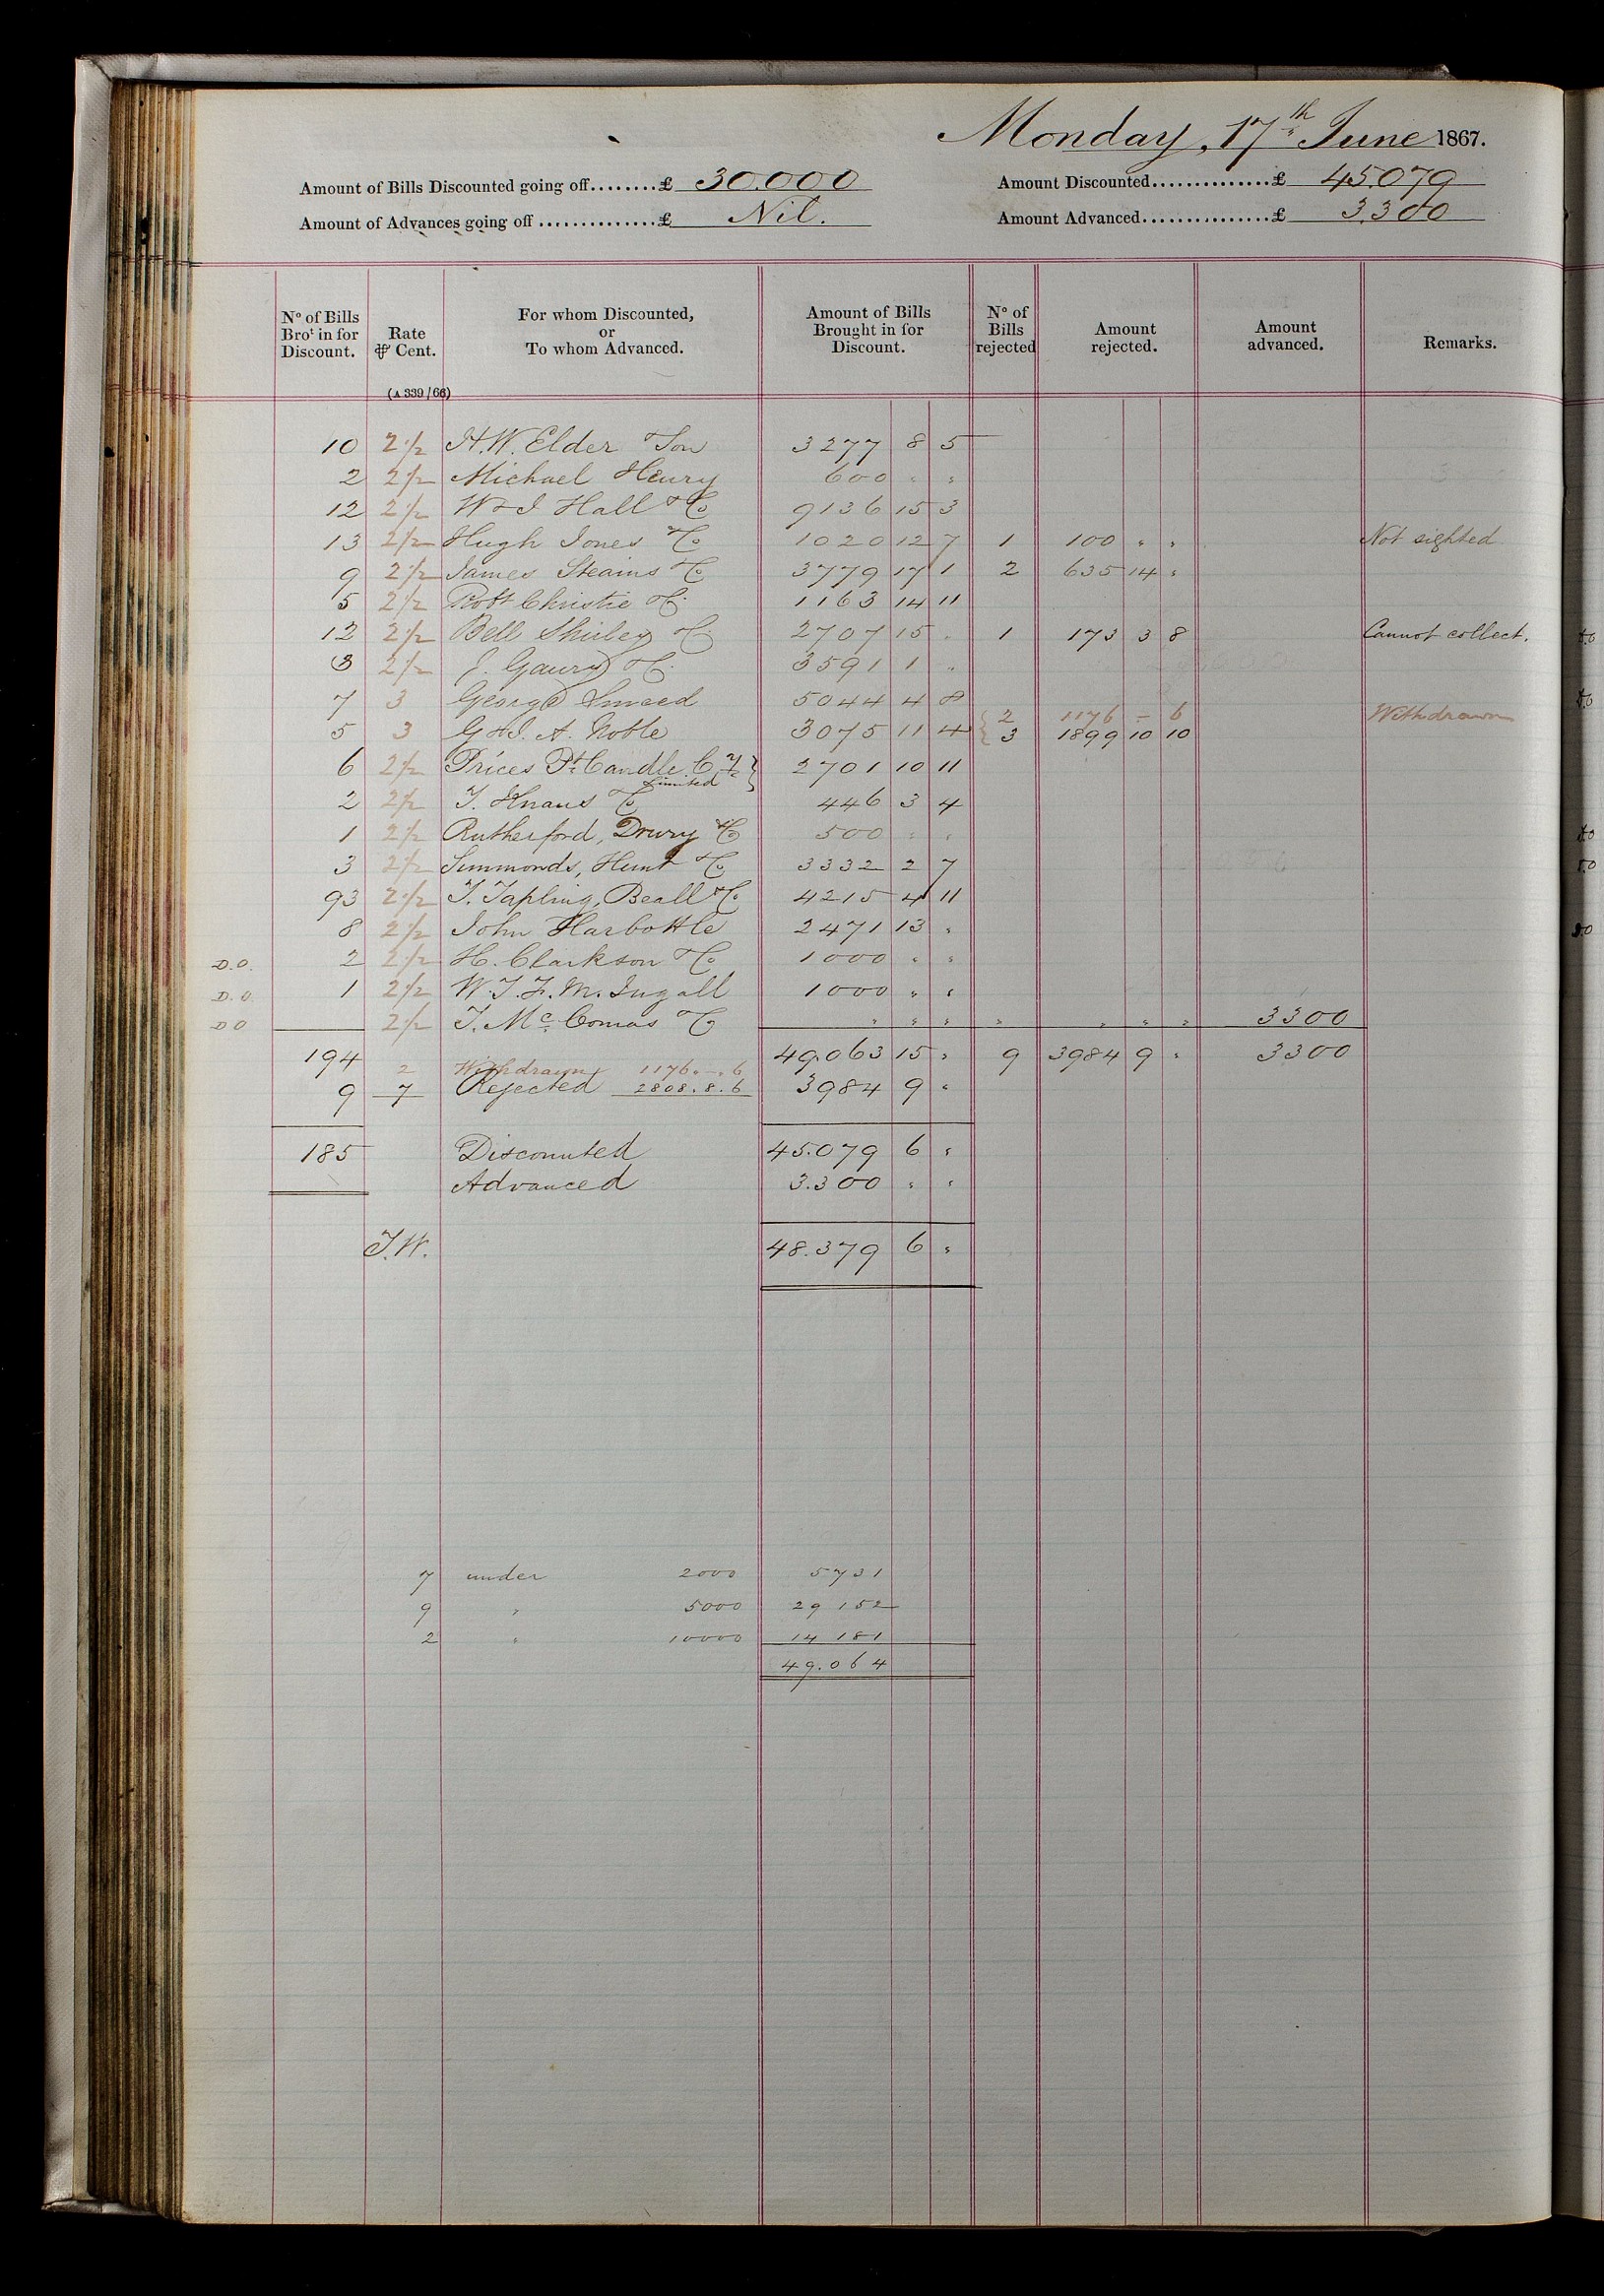 Monday, 17th June 1867.
Amount of Bills Discounted going off........£ 30.000 Amount Discounted..............£ 45.079
Amount of Advances going off ..............£ Nil. Amount Advanced...............£ 3.300
No of Bills Brot in for Discount. Rate ⅌ Cent. For whom Discounted, or To whom Advanced. Amount of Bills Brought in for Discount. No of Bills rejected Amount rejected. Amount advanced. Remarks.
(A 339/66)
10 2½ H.W. Elder & Son 3277 8 5
2 2½ Michael Henry 600 " "
12 2½ W & I Hall & Co 9136 15 3
13 2½ Hugh Jones & Co 1020 12 7 1 100 " " Not sighted
9 2½ James Steains & Co 3779 17 1 2 635 14 "
5 2½ Robt Christie & Co 1163 14 11
12 2½ Bell Shirley & Co 2707 15 " 1 173 3 8 Cannot collect.
3 2½ J. Gaury & Co. 3591 1 "
7 3 George Smeed 5044 4 8
5 3 G & J. A. Noble 3075 11 4 { 2 1176 - 6 Withdrawn
3 1899 10 10
6 2½ Prices Pt Candle Cy } 2701 10 11
Limited
2 2½ T. Knaus & Co 446 3 4
1 2½ Rutherford, Drury & Co 500 " "
3 2½ Simmonds, Hunt & Co 3332 2 7
93 2½ T. Tapling, Beall & Co. 4215 4 11
8 2½ John Harbottle 2471 13 "
D.O. 2 2½ H. Clarkson & Co 1000 " "
D.O. 1 2½ W.T.F.M. Ingall 1000 " "
DO 2½ T. Mc Comas & Co " " " " " " " 3300
194 49.063 15 " 9 3984 9 " 3300
2 Withdrawn 1176.-.6
9 7 Rejected 2808.8.6 3984 9 "
185 Discounted 45.079 6 "
Advanced 3.300 " "
T.W. 48.379 6 "
7 under 2000 5731
9 " 5000 29152
2 " 10000 14181
49.064